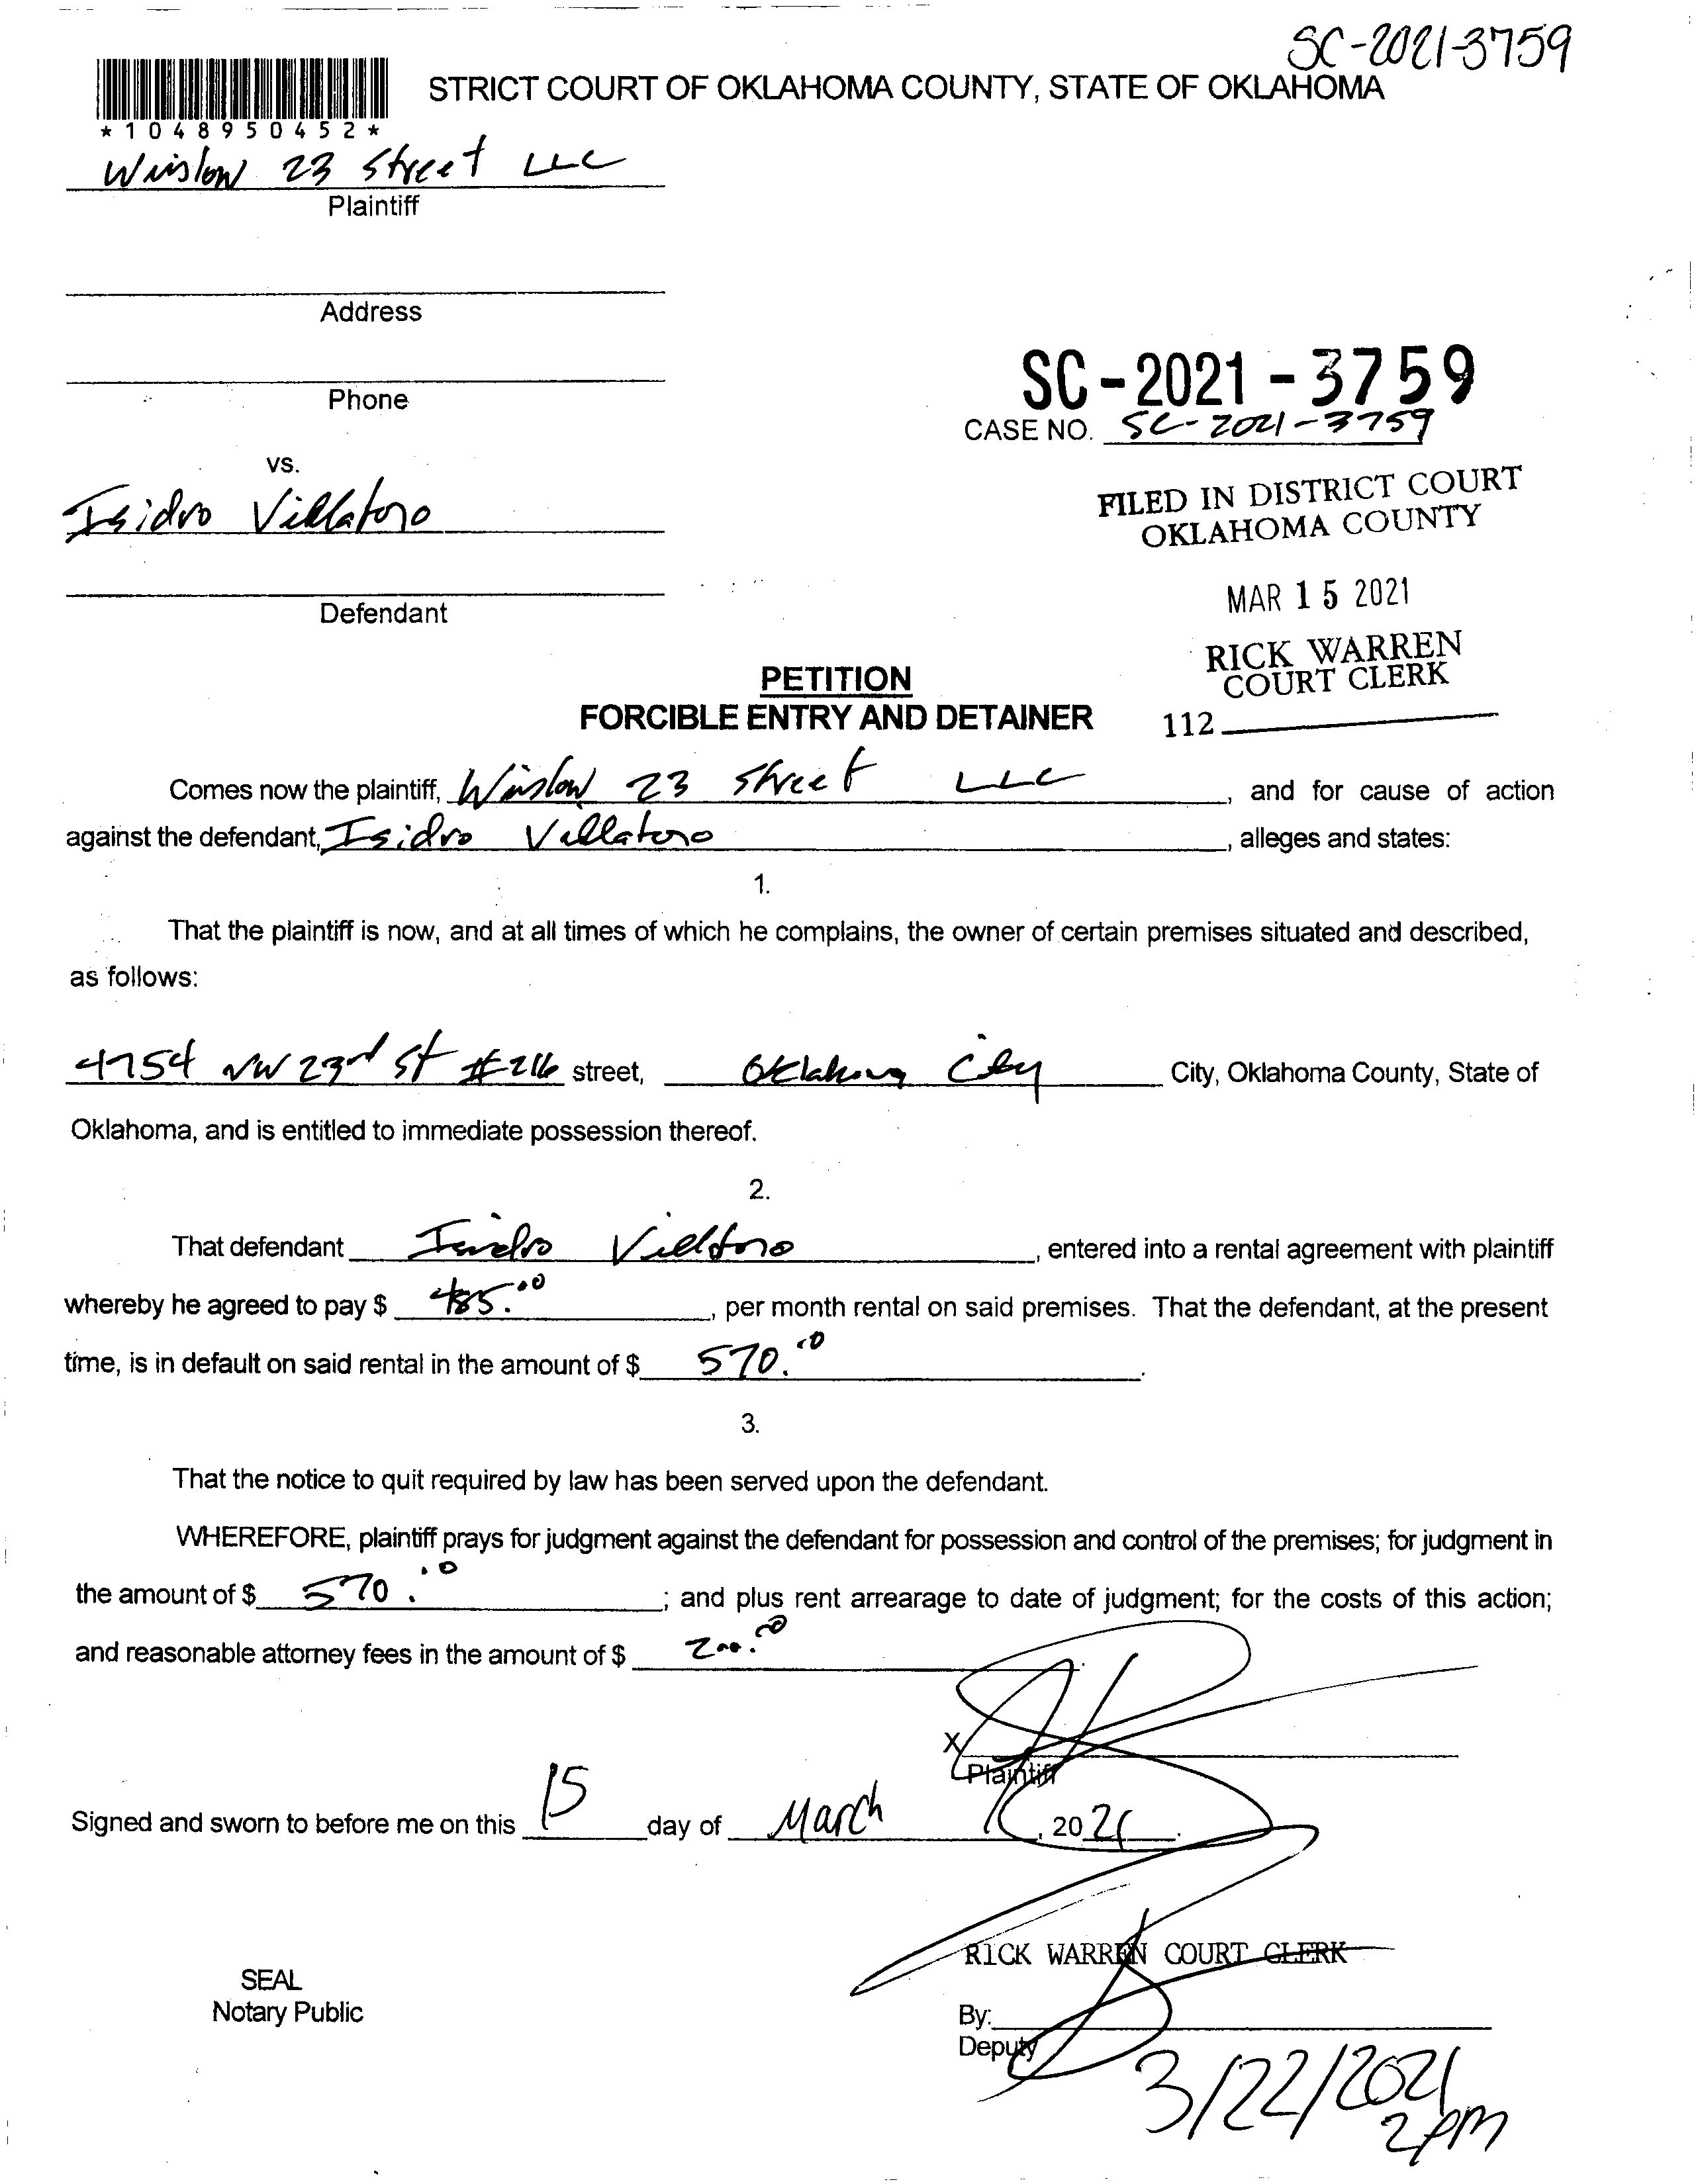 SC-2021-3759
STRICT COURT OF OKLAHOMA COUNTY, STATE OF OKLAHOMA
*1048950452*
Winslow 23 Street LLC
Plaintiff
Address
Phone
SC-2021-3759
CASE NO. SC-2021-3759
vs.
Isidro Villatoro
FILED IN DISTRICT COURT
OKLAHOMA COUNTY
MAR 15 2021
Defendant
RICK WARREN
COURT CLERK
112
PETITION
FORCIBLE ENTRY AND DETAINER
Comes now the plaintiff, Winslow 23 Street LLC, and for cause of action
against the defendant, Isidro Villatoro, alleges and states:
1.
That the plaintiff is now, and at all times of which he complains, the owner of certain premises situated and described,
as follows:
4754 NW 23rd St #216 street, Oklahoma City City, Oklahoma County, State of
Oklahoma, and is entitled to immediate possession thereof.
2.
That defendant Isidro Villatoro, entered into a rental agreement with plaintiff
whereby he agreed to pay $ 485.00, per month rental on said premises. That the defendant, at the present
time, is in default on said rental in the amount of $ 570.00.
3.
That the notice to quit required by law has been served upon the defendant.
WHEREFORE, plaintiff prays for judgment against the defendant for possession and control of the premises; for judgment in
the amount of $ 570.00; and plus rent arrearage to date of judgment; for the costs of this action;
and reasonable attorney fees in the amount of $ 200.00.
X
Plaintiff
Signed and sworn to before me on this 15 day of March, 2021.
RICK WARREN COURT CLERK
SEAL
Notary Public
By:
Deputy
3/22/2021
2 PM